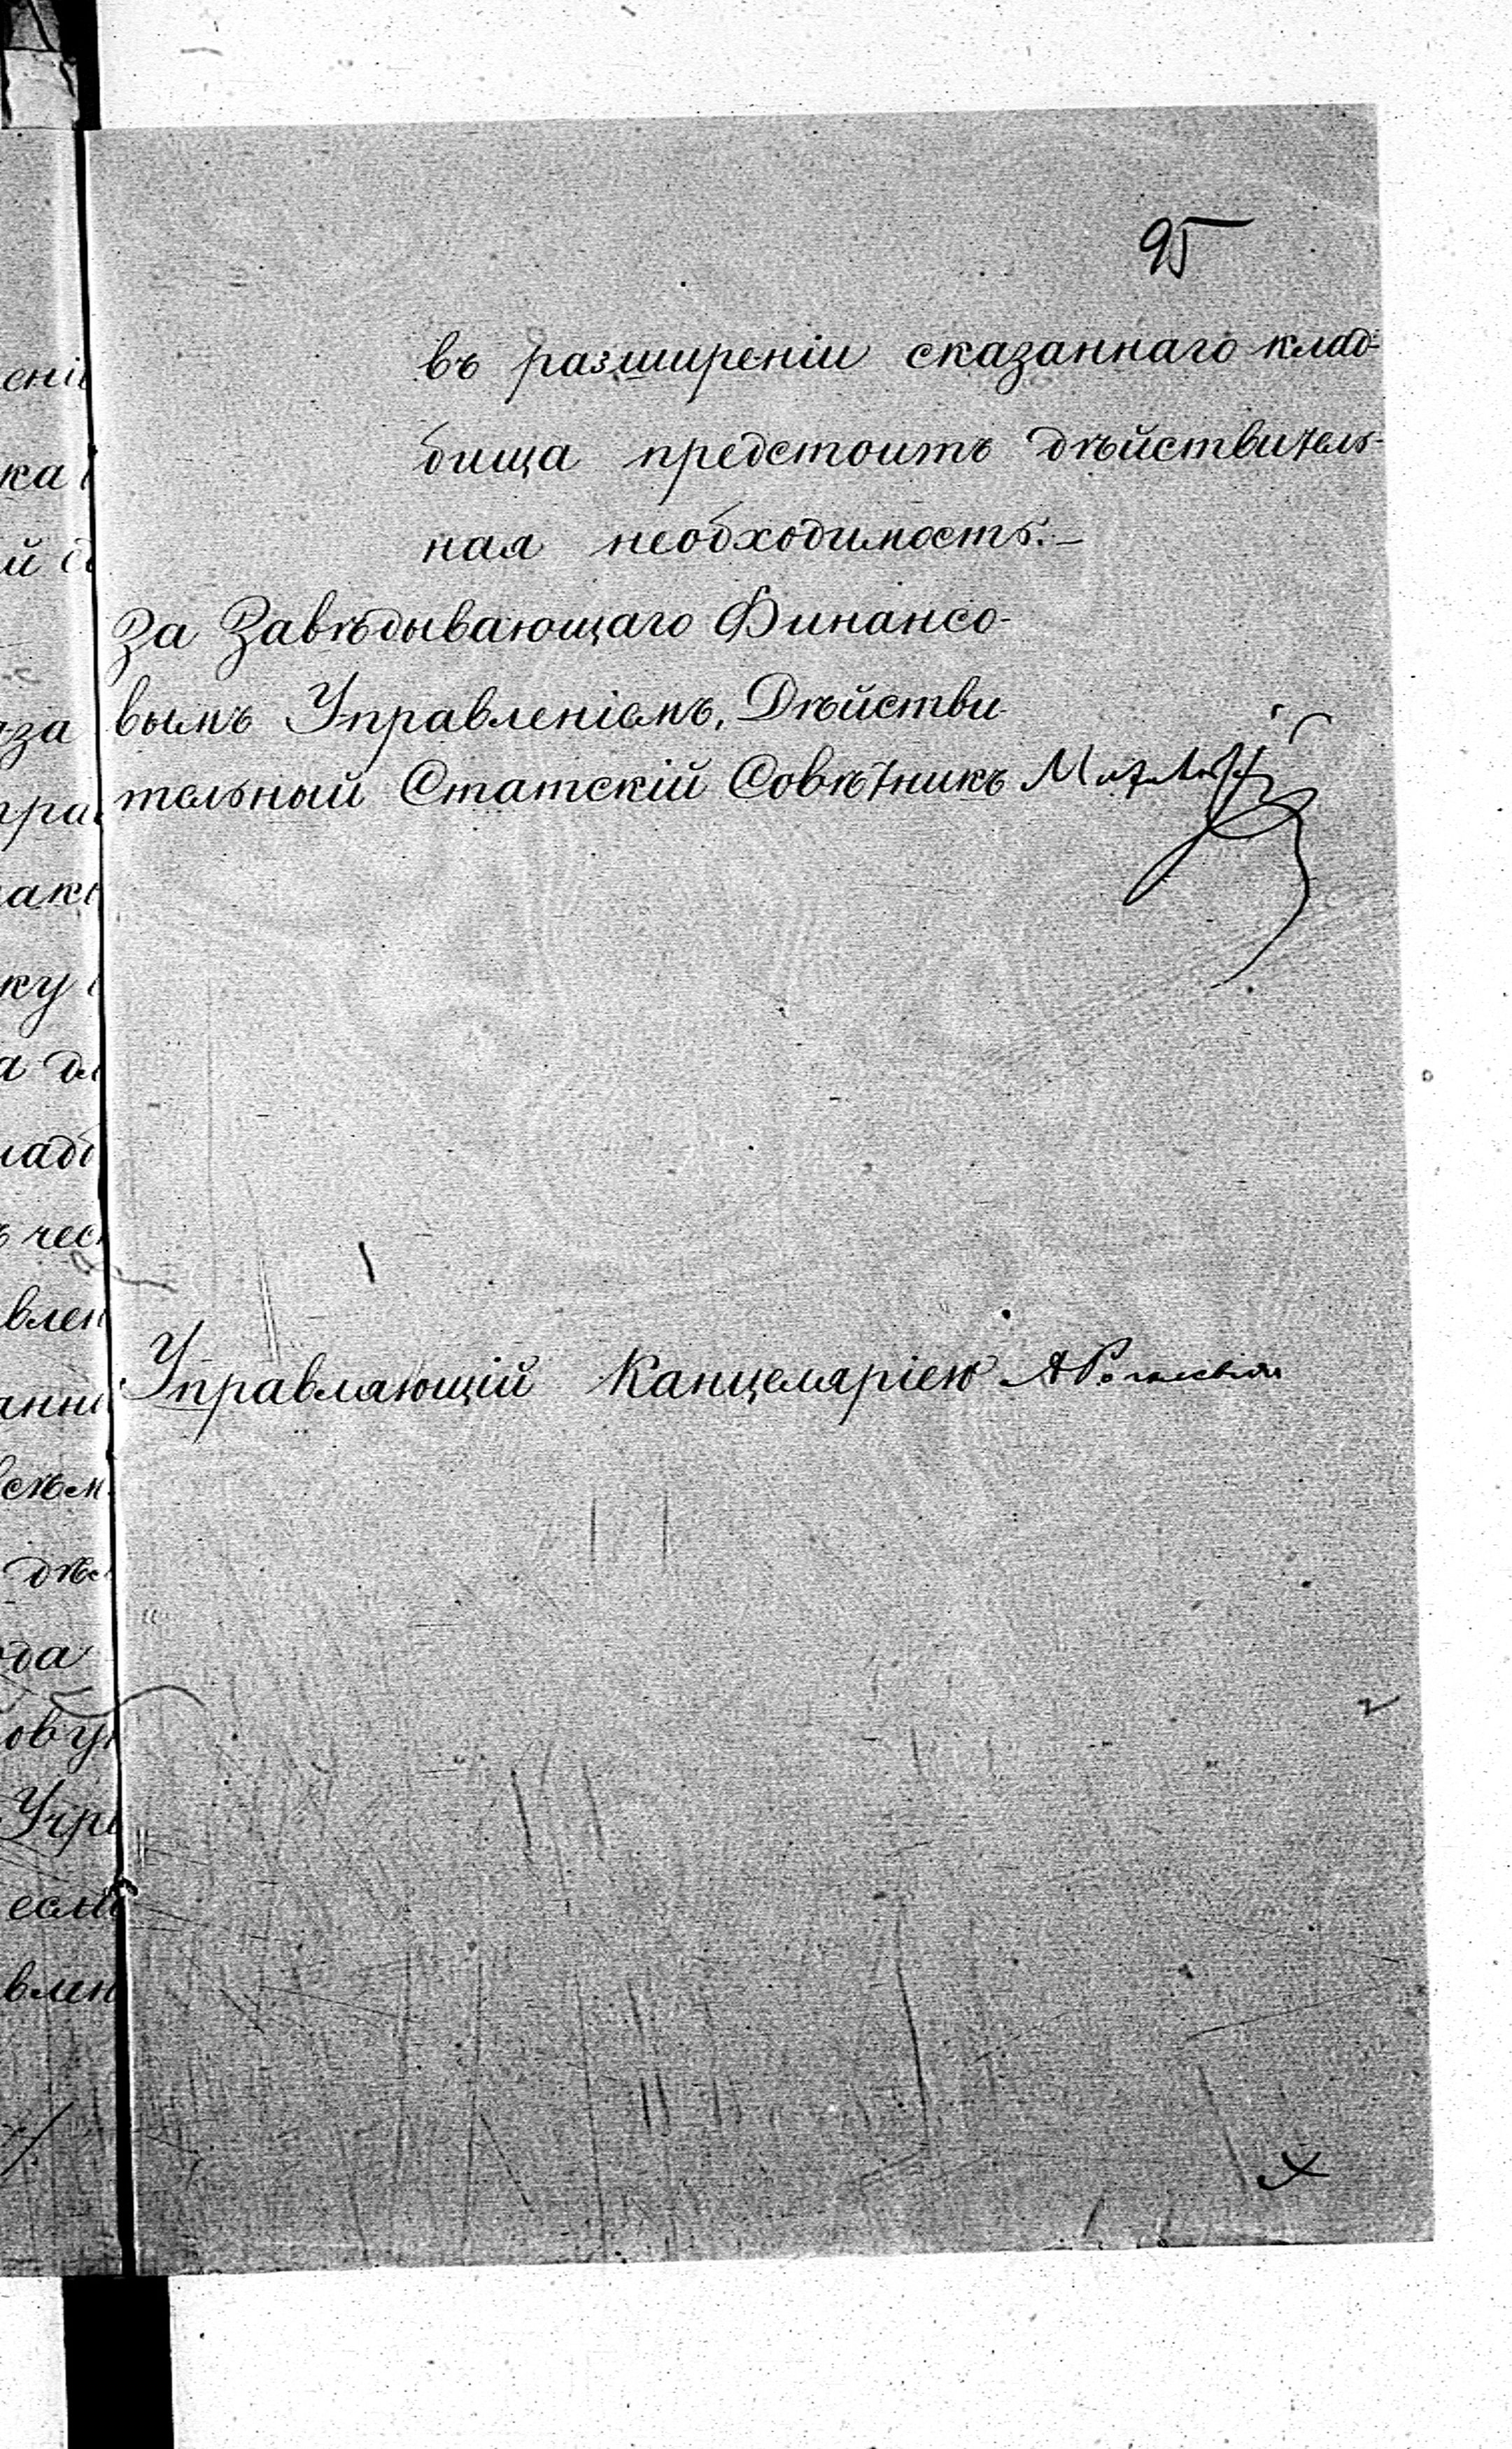 95
въ разширеніи сказаннаго клад-
бища предстоитъ дѣйствитель-
ная необходимость.–
За Завѣдывающаго Финансо-
вымъ Управленіемъ, Дѣйстви
тельный Статскій Совѣтникъ
Управляющій Канцеляріею